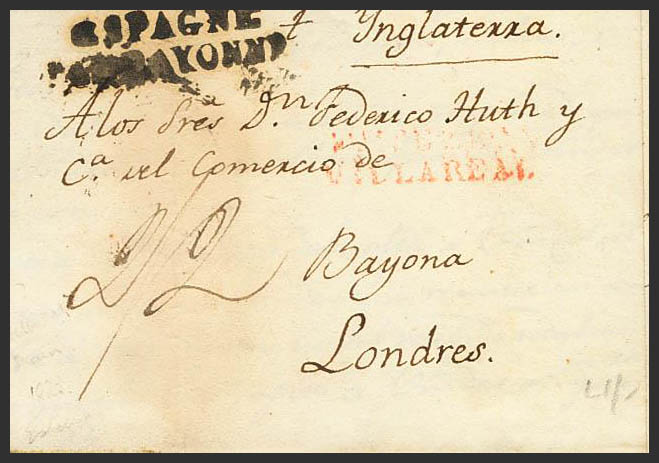 ESPAGNE
BAYONNE
† Ynglaterra.
A los Sres Dn. Federico Huth y
Ca. del Comercio de
VILLAREAL.
2/2
Bayona
Londres.